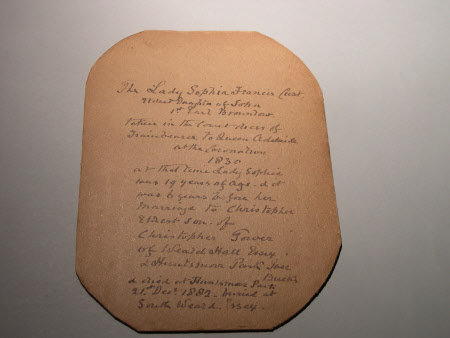 The Lady Sophia Frances Cust
Eldest Daughter of John
1st Earl Brownlow
taken in the Court dress of
Trainbearer to Queen Adelaide
at the Coronation
1830
at that time Lady Sophia
was 19 years of age. & it
was 6 years before her
marriage to Christopher
Eldest son of
Christopher Tower
of Weald Hall Essex
& Huntsmoor Park Iver
Bucks
& died at Huntsmoor Park
21st Decr 1882. buried at
South Weald. Essex.